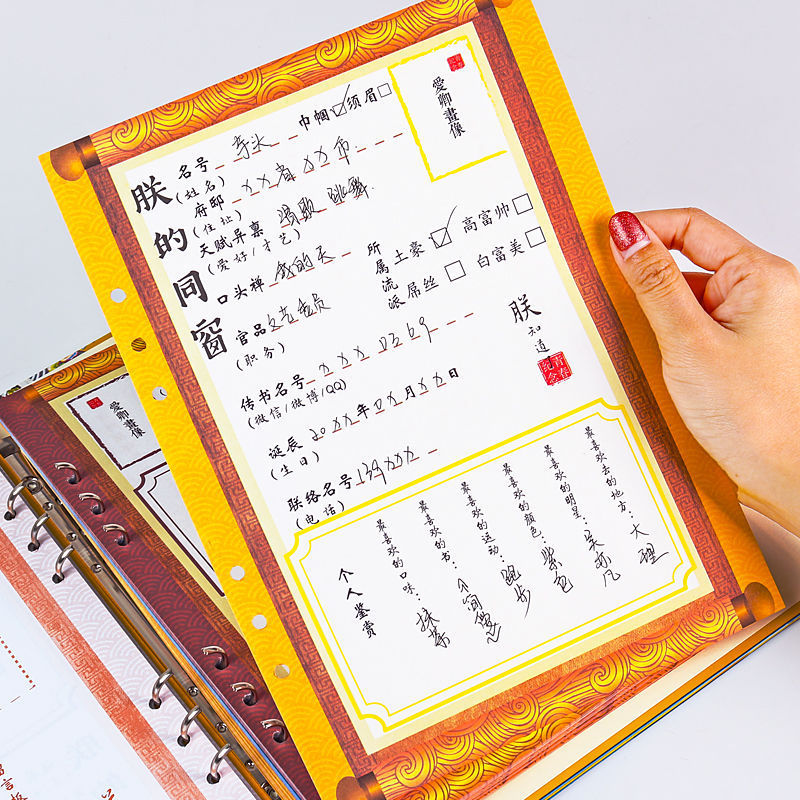 朕的同窗
巾帼☑ 须眉□
名号
(姓名)
府邸 XX省XX市
(住址)
天赋异禀 唱歌 跳舞
(爱好/才艺)
口头禅 我的天
官品 文艺委员
(职务)
传书名号 XXX0369
(微信/微博/QQ)
诞辰 20XX年0X月XX日
(生日)
联络名号 139XXXX
(电话)
所属流派
土豪☑ 高富帅□
屌丝□ 白富美□
愛卿畫像
青春纪念
朕知道
青春纪念
最喜欢去的地方:大理
最喜欢的明星:吴亦凡
最喜欢的颜色:紫色
最喜欢的运动:跑步
最喜欢的书:
最喜欢的口味:抹茶
个人鉴赏
愛卿畫像